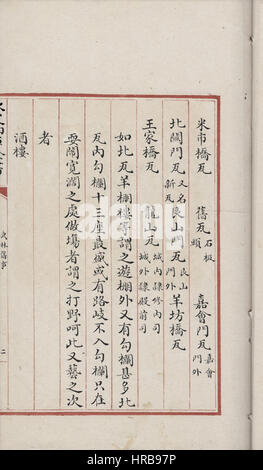 米市橋瓦　舊瓦石板頭　嘉會門瓦嘉會門外
北關門瓦又名新瓦　艮山門瓦艮山門外　羊坊橋瓦
王家橋瓦　龍山瓦　城內隸修內司城外隸殿前司
如北瓦羊棚樓等謂之遊棚外又有勾欄甚多北
瓦內勾欄十三座最盛或有路岐不入勾欄只在
耍鬧寬濶之處做場者謂之打野呵此又藝之次
者
酒樓
武林舊事
alamy
HRB97P